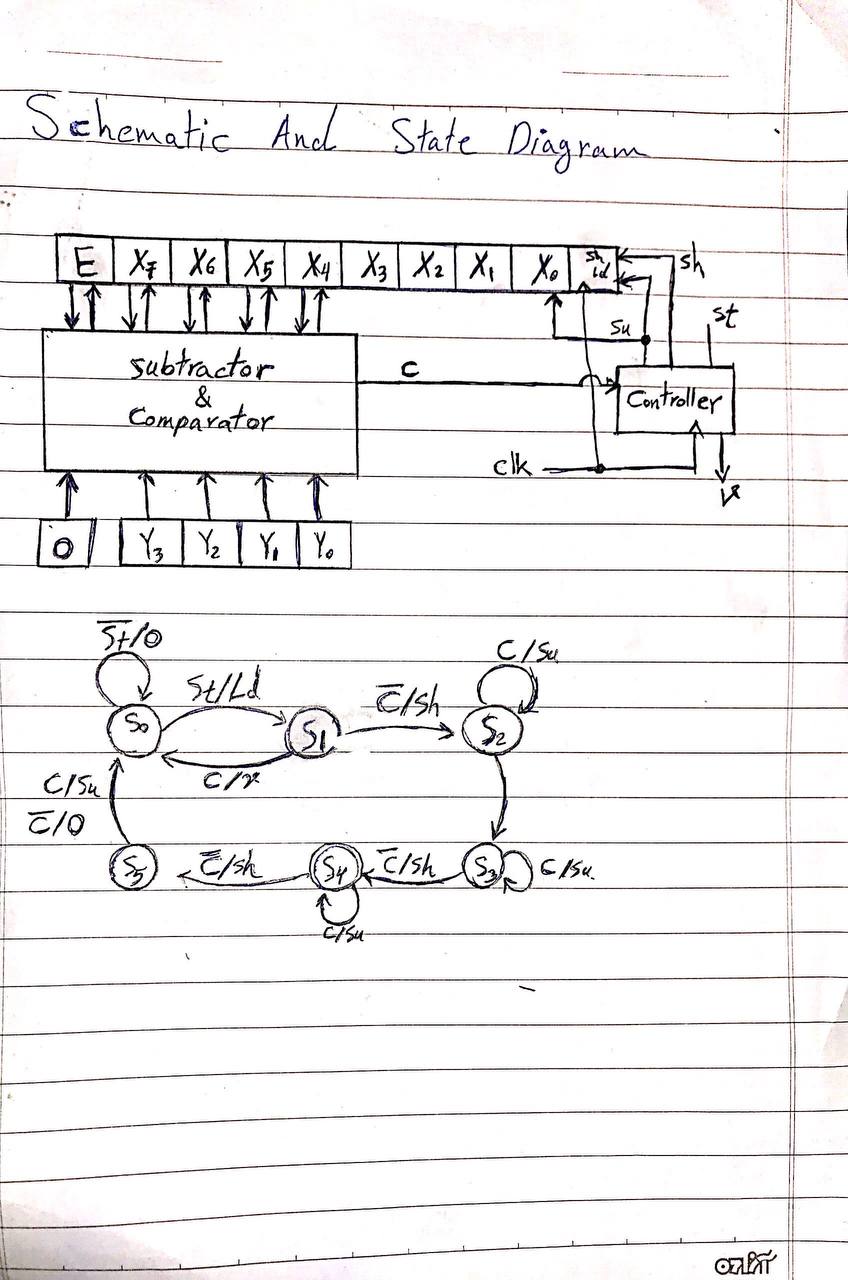 Schematic And State Diagram
E X7 X6 X5 X4 X3 X2 X1 X0 sh ld
sh
su
st
subtractor
&
Comparator
C
Controller
clk
V
0 Y3 Y2 Y1 Y0
S̅t̅/0
St/Ld
C̅/sh
C/Su
S0
S1
S2
C/v
C/Su
C̅/0
S5
C̅/sh
S4
C̅/sh
S3
C/Su
C/Su